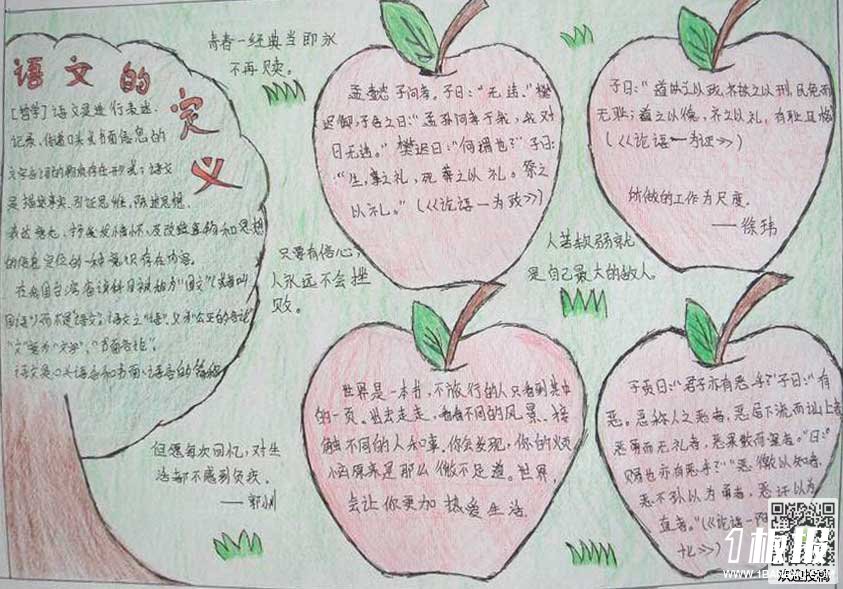 语文的
定
义
[哲学]语文是进行表述、
记录、传递口头或书面信息的
文字言词的物质存在形式；语文
是描绘事实、引证思维、陈述思想、
的信息定位的一种意识存在内容。
语文是口头语言和书面语言的简称
青春一经典当即永
不再赎。
孟懿子问孝。子曰：“无违。”樊
迟御，子告之曰：“孟孙问孝于我，我对
曰无违。”樊迟曰：“何谓也？”子曰：
“生，事之礼，死葬之以礼。祭之
以礼。”(《论语一为政》)
子曰：“道之以政，齐之以刑，民免而
无耻；道之以德，齐之以礼，有耻且格
(《论语一为政》)
所做的工作为尺度。
——徐玮
只要有信心，
人永远不会挫
败。
人若软弱就
是自己最大的敌人。
世界是一本书，不旅行的人只看到其中
的一页。出去走走，看看不同的风景、接
触不同的人和事。你会发现，你的烦
恼原来是那么微不足道。世界，
会让你更加热爱生活
子贡曰：“君子亦有恶乎？”子曰：“有
恶。恶称人之恶者，恶居下流而讪上者
恶勇而无礼者，恶果敢而窒者。”曰：“
赐也亦有恶乎？”“恶徼以知者，
恶不孙以为勇者，恶讦以为
直者。”(《论语一阳
货》)
但愿每次回忆，对生
活都不感到负疚。
——郭小川
板报
欢迎投稿